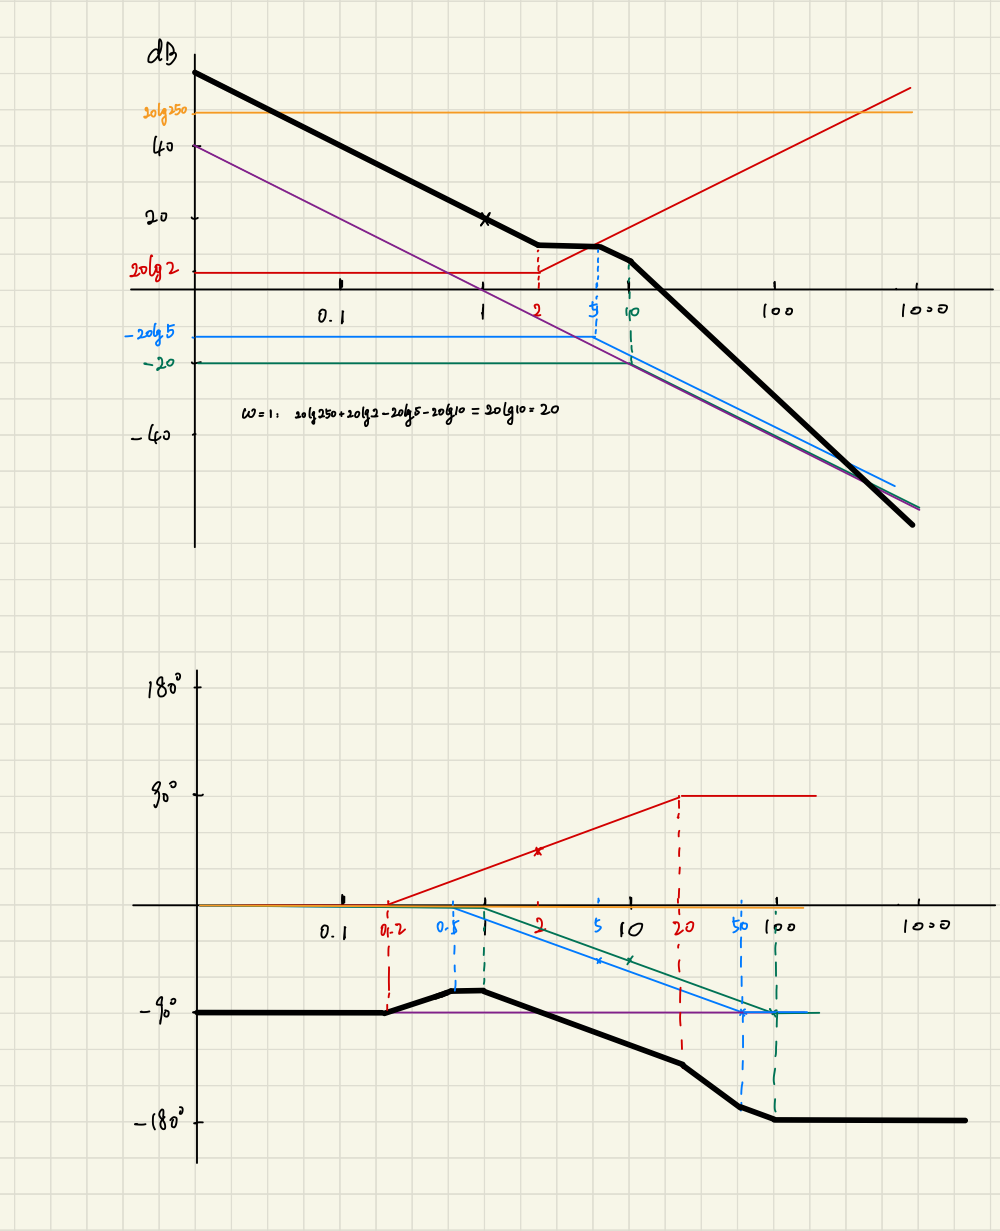 dB
20lg250
40
20
20lg2
0.1 1 2 5 10 100 1000
-20lg5
-20
ω=1: 20lg250+20lg2-20lg5-20lg10 = 20lg10 = 20
-40
180°
90°
0.1 0.2 0.5 1 2 5 10 20 50 100 1000
-90°
-180°